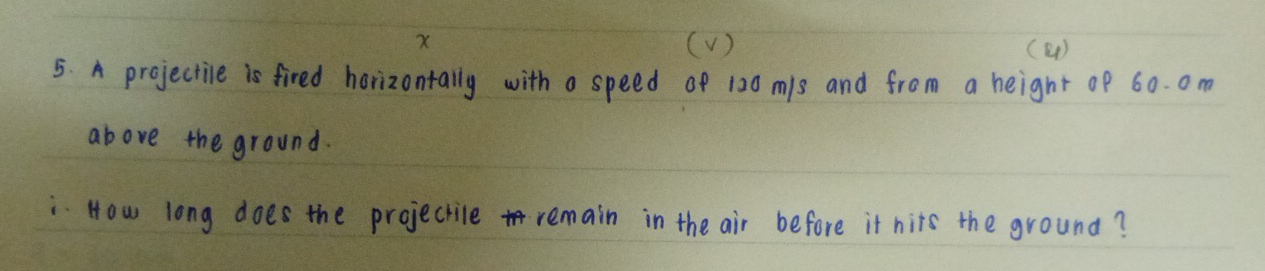 x (v) (y)
5. A projectile is fired horizontally with a speed of 120 m/s and from a height of 60.0m
above the ground.
i. How long does the projectile remain in the air before it hits the ground?